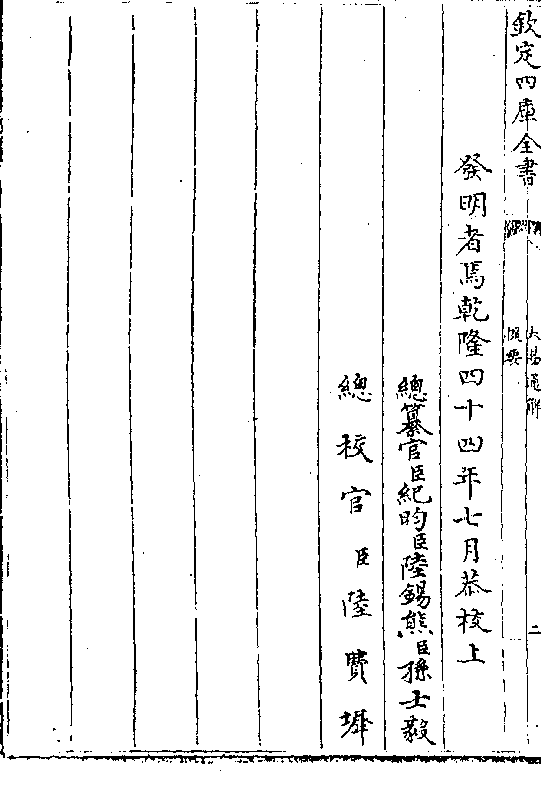 欽定四庫全書
大易通解
提要
二
發明者焉乾隆四十四年七月恭校上
總纂官臣紀昀臣陸錫熊臣孫士毅
總校官臣陸費墀